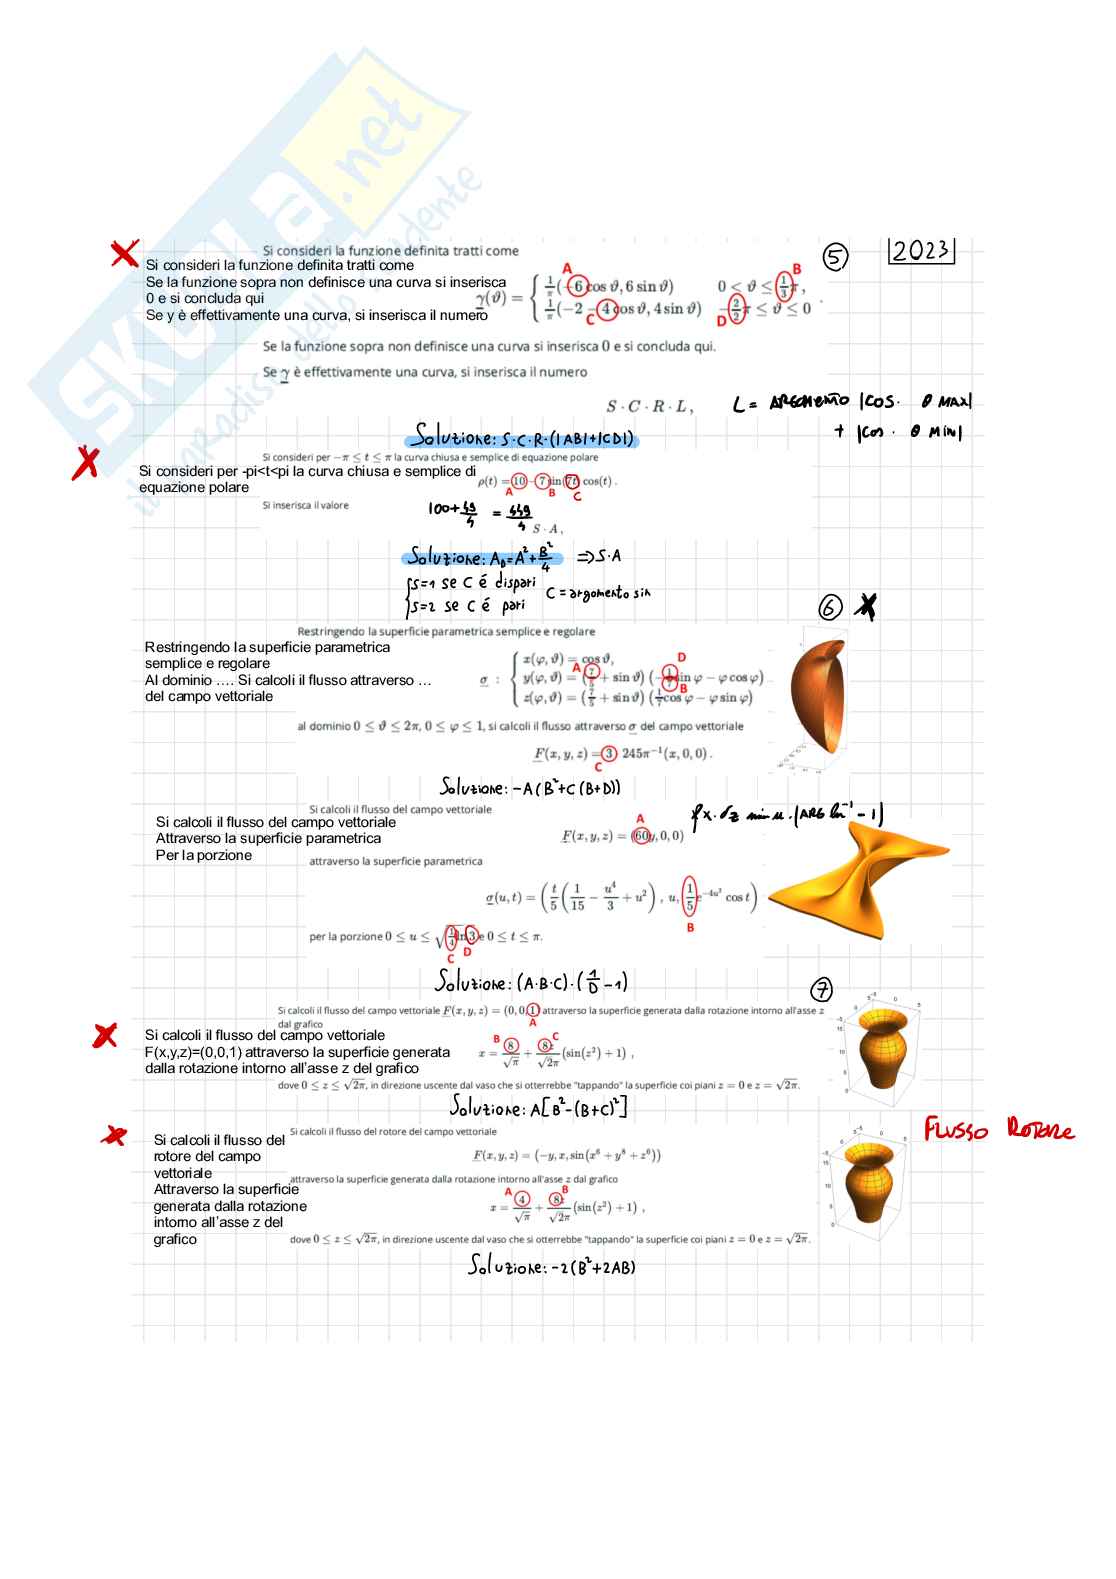 SKUOLA.net
il paradiso dello studente
2023
5
Si consideri la funzione definita tratti come
Si consideri la funzione definita tratti come
Se la funzione sopra non definisce una curva si inserisca
0 e si concluda qui
Se y è effettivamente una curva, si inserisca il numero
A B
γ(ϑ) = { 1/π(−6 cos ϑ, 6 sin ϑ) 0 < ϑ ≤ 1/3 π,
1/π(−2 − 4 cos ϑ, 4 sin ϑ) −2/2 π ≤ ϑ ≤ 0 .
C D
Se la funzione sopra non definisce una curva si inserisca 0 e si concluda qui.
Se γ è effettivamente una curva, si inserisca il numero
S · C · R · L,
L = ARGOMENTO |COS. θ MAX|
+ |COS. θ MIN|
Soluzione: S·C·R·(|AB|+|CD|)
Si consideri per −π ≤ t ≤ π la curva chiusa e semplice di equazione polare
Si consideri per -pi<t<pi la curva chiusa e semplice di
equazione polare
ρ(t) = 10 − 7 sin(7t) cos(t) .
A B C
Si inserisca il valore
100+49/4 = 449/4
S · A,
Soluzione: A₀=A²+B²/4 ⇒S·A
{S=1 se C é dispari
S=2 se C é pari
C = argomento sin
6
Restringendo la superficie parametrica semplice e regolare
Restringendo la superficie parametrica
semplice e regolare
Al dominio …. Si calcoli il flusso attraverso …
del campo vettoriale
σ : { x(φ, ϑ) = cos ϑ,
y(φ, ϑ) = (7/5 + sin ϑ) (−1/7 sin φ − φ cos φ)
z(φ, ϑ) = (7/5 + sin ϑ) (1/7 cos φ − φ sin φ)
A D B
al dominio 0 ≤ ϑ ≤ 2π, 0 ≤ φ ≤ 1, si calcoli il flusso attraverso σ del campo vettoriale
F(x, y, z) = 3 245π⁻¹(x, 0, 0) .
C
Soluzione: -A(B²+C(B+D))
Si calcoli il flusso del campo vettoriale
Si calcoli il flusso del campo vettoriale
Attraverso la superficie parametrica
Per la porzione
A
F(x, y, z) = (60y, 0, 0)
attraverso la superficie parametrica
σ(u, t) = ( t/5 ( 1/15 − u⁴/3 + u² ) , u, 1/5 e^−4u² cos t )
B
per la porzione 0 ≤ u ≤ √(1/4 ln 3) e 0 ≤ t ≤ π.
C D
Soluzione: (A·B·C)·(1/D −1)
7
Si calcoli il flusso del campo vettoriale F(x, y, z) = (0, 0, 1) attraverso la superficie generata dalla rotazione intorno all'asse z
dal grafico
A
Si calcoli il flusso del campo vettoriale
F(x,y,z)=(0,0,1) attraverso la superficie generata
dalla rotazione intorno all'asse z del grafico
B C
x = 8/√π + 8z/√2π (sin(z²) + 1) ,
dove 0 ≤ z ≤ √2π, in direzione uscente dal vaso che si otterrebbe "tappando" la superficie coi piani z = 0 e z = √2π.
Soluzione: A[B²-(B+C)²]
Si calcoli il flusso del rotore del campo vettoriale
FLUSSO ROTORE
Si calcoli il flusso del
rotore del campo
vettoriale
Attraverso la superficie
generata dalla rotazione
intorno all'asse z del
grafico
F(x, y, z) = (−y, x, sin(x⁶ + y⁸ + z⁶))
attraverso la superficie generata dalla rotazione intorno all'asse z dal grafico
A B
x = 4/√π + 8z/√2π (sin(z²) + 1) ,
dove 0 ≤ z ≤ √2π, in direzione uscente dal vaso che si otterrebbe "tappando" la superficie coi piani z = 0 e z = √2π.
Soluzione: -2(B²+2AB)